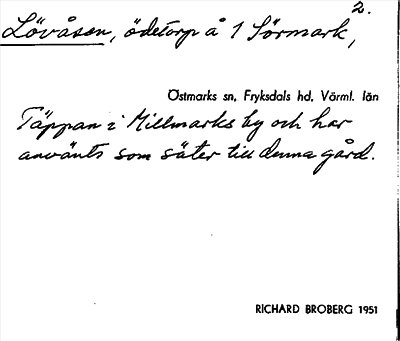 2.
Lövåsen, ödetorp å 1 Sörmark,
Östmarks sn, Fryksdals hd, Värml. län
Täppan i Millmarks by och har
använts som säter till denna gård.
RICHARD BROBERG 1951